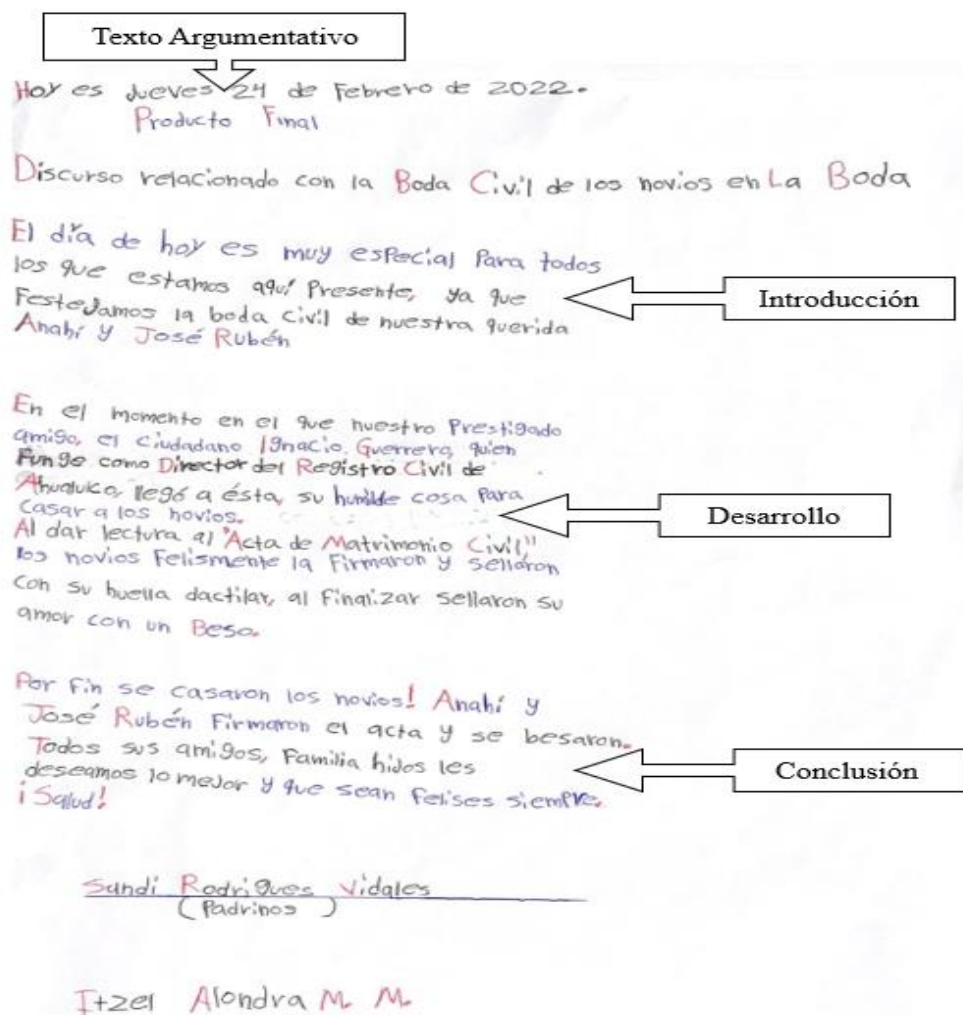 Texto Argumentativo
Hoy es Jueves 24 de Febrero de 2022.
Producto Final
Discurso relacionado con la Boda Civil de los novios en La Boda
El día de hoy es muy especial Para todos
los que estamos aquí Presente, ya que
Introducción
FesteJamos la boda civil de nuestra querida
Anahí y José Rubén
En el momento en el que nuestro Prestigado
amigo, el ciudadano Ignacio Guerrero, quien
Funge como Director del Registro Civil de
Ahualulco, llegó a ésta, su humilde cosa Para
casar a los novios.
Desarrollo
Al dar lectura al "Acta de Matrimonio Civil"
los novios Felismente la Firmaron y sellaron
con su huella dactilar, al Finalizar sellaron su
amor con un Beso.
Por Fin se casaron los novios! Anahí y
José Rubén Firmaron el acta y se besaron.
Todos sus amigos, Familia hidos les
Conclusión
deseamos lo mejor y que sean Felises siempre.
¡Salud!
Sandi Rodrigues Vidales
(Padrinos)
Itzel Alondra M. M.